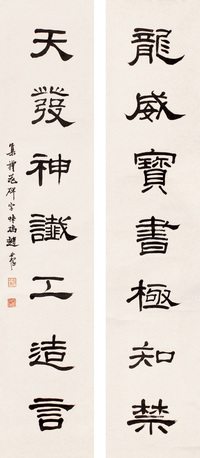 龍威寶書極知禁
天發神讖工造言
集 碑字